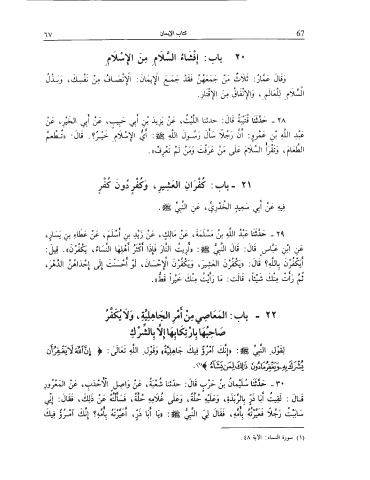 67 كتاب الإيمان ٦٧
٢٠ - باب: إِفْشَاءُ السَّلَامِ مِنَ الإِسْلَامِ
وَقَالَ عَمَّارٌ: ثَلَاثٌ مَنْ جَمَعَهُنَّ فَقَدْ جَمَعَ الإِيمَانَ: الإِنْصَافُ مِنْ نَفْسِكَ، وَبَذْلُ
السَّلَامِ لِلْعَالَمِ، وَالإِنْفَاقُ مِنَ الإِقْتَارِ.
٢٨ - حَدَّثَنَا قُتَيْبَةُ قَالَ: حدثنا اللَّيْثُ، عَنْ يَزِيدَ بْنِ أَبِي حَبِيبٍ، عَنْ أَبِي الخَيْرِ، عَنْ
عَبْدِ اللَّهِ بْنِ عَمْرٍو: أَنَّ رَجُلًا سَأَلَ رَسُولَ اللَّهِ ﷺ: أَيُّ الإِسْلَامِ خَيْرٌ؟. قَالَ: «تُطْعِمُ
الطَّعَامَ، وَتَقْرَأُ السَّلَامَ عَلَى مَنْ عَرَفْتَ وَمَنْ لَمْ تَعْرِفْ».
٢١ - باب: كُفْرَانِ العَشِيرِ، وَكُفْرٍ دُونَ كُفْرٍ
فِيهِ عَنْ أَبِي سَعِيدٍ الخُدْرِيِّ، عَنِ النَّبِيِّ ﷺ.
٢٩ - حَدَّثَنَا عَبْدُ اللَّهِ بْنُ مَسْلَمَةَ، عَنْ مَالِكٍ، عَنْ زَيْدِ بْنِ أَسْلَمَ، عَنْ عَطَاءِ بْنِ يَسَارٍ،
عَنِ ابْنِ عَبَّاسٍ قَالَ: قَالَ النَّبِيُّ ﷺ: «أُرِيتُ النَّارَ فَإِذَا أَكْثَرُ أَهْلِهَا النِّسَاءُ، يَكْفُرْنَ». قِيلَ:
أَيَكْفُرْنَ بِاللَّهِ؟ قَالَ: «يَكْفُرْنَ العَشِيرَ، وَيَكْفُرْنَ الإِحْسَانَ، لَوْ أَحْسَنْتَ إِلَى إِحْدَاهُنَّ الدَّهْرَ،
ثُمَّ رَأَتْ مِنْكَ شَيْئًا، قَالَتْ: مَا رَأَيْتُ مِنْكَ خَيْرًا قَطُّ».
٢٢ - باب: المَعَاصِي مِنْ أَمْرِ الجَاهِلِيَّةِ، وَلَا يُكَفَّرُ
صَاحِبُهَا بِارْتِكَابِهَا إِلَّا بِالشِّرْكِ
لِقَوْلِ النَّبِيِّ ﷺ: «إِنَّكَ امْرُؤٌ فِيكَ جَاهِلِيَّةٌ» وَقَوْلِ اللَّهِ تَعَالَى: ﴿إِنَّ اللَّهَ لَا يَغْفِرُ أَن
يُشْرَكَ بِهِ وَيَغْفِرُ مَا دُونَ ذَٰلِكَ لِمَن يَشَاءُ﴾(١).
٣٠ - حَدَّثَنَا سُلَيْمَانُ بْنُ حَرْبٍ قَالَ: حدثنا شُعْبَةُ، عَنْ وَاصِلٍ الأَحْدَبِ، عَنِ المَعْرُورِ
قَالَ: لَقِيتُ أَبَا ذَرٍّ بِالرَّبَذَةِ، وَعَلَيْهِ حُلَّةٌ، وَعَلَى غُلَامِهِ حُلَّةٌ، فَسَأَلْتُهُ عَنْ ذَلِكَ، فَقَالَ: إِنِّي
سَابَبْتُ رَجُلًا فَعَيَّرْتُهُ بِأُمِّهِ، فَقَالَ لِيَ النَّبِيُّ ﷺ: «يَا أَبَا ذَرٍّ، أَعَيَّرْتَهُ بِأُمِّهِ؟ إِنَّكَ امْرُؤٌ فِيكَ
(١) سورة النساء: الآية ٤٨.